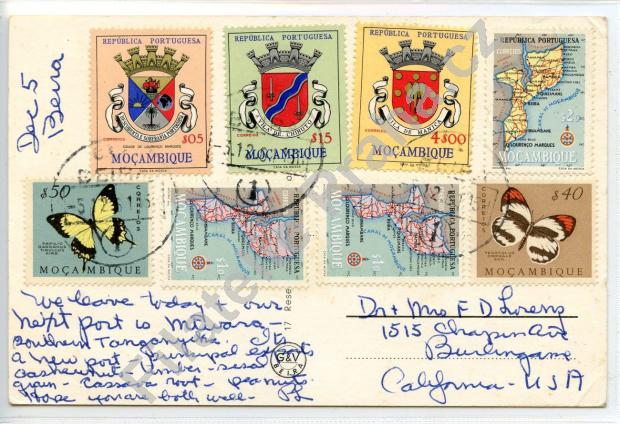 Dec 5
Beira
REPÚBLICA PORTUGUESA
CORREIOS
$05
MOÇAMBIQUE
REPÚBLICA PORTUGUESA
CORREIOS
$15
MOÇAMBIQUE
REPÚBLICA PORTUGUESA
VILA DE MANICA
CORREIOS
4$00
MOÇAMBIQUE
REPÚBLICA PORTUGUESA
CORREIOS
BEIRA
INHAMBANE
LOURENÇO MARQUES
MOÇAMBIQUE
$50
CORREIOS
MOÇAMBIQUE
REPÚBLICA PORTUGUESA
CANAL DE MOÇAMBIQUE
MOÇAMBIQUE
REPÚBLICA PORTUGUESA
CANAL DE MOÇAMBIQUE
MOÇAMBIQUE
$40
CORREIOS
MOÇAMBIQUE
We leave today & our
next port is
Southern Tanganyika
a new port. Principal exports
cashewnuts timber - sisal
grain - Cassava root - peanuts
Hope you are both well -
17 Rese
G&V
BEIRA
Dr & Mrs F D Lorenz
1515 Chapin Ave
Burlingame
California - USA